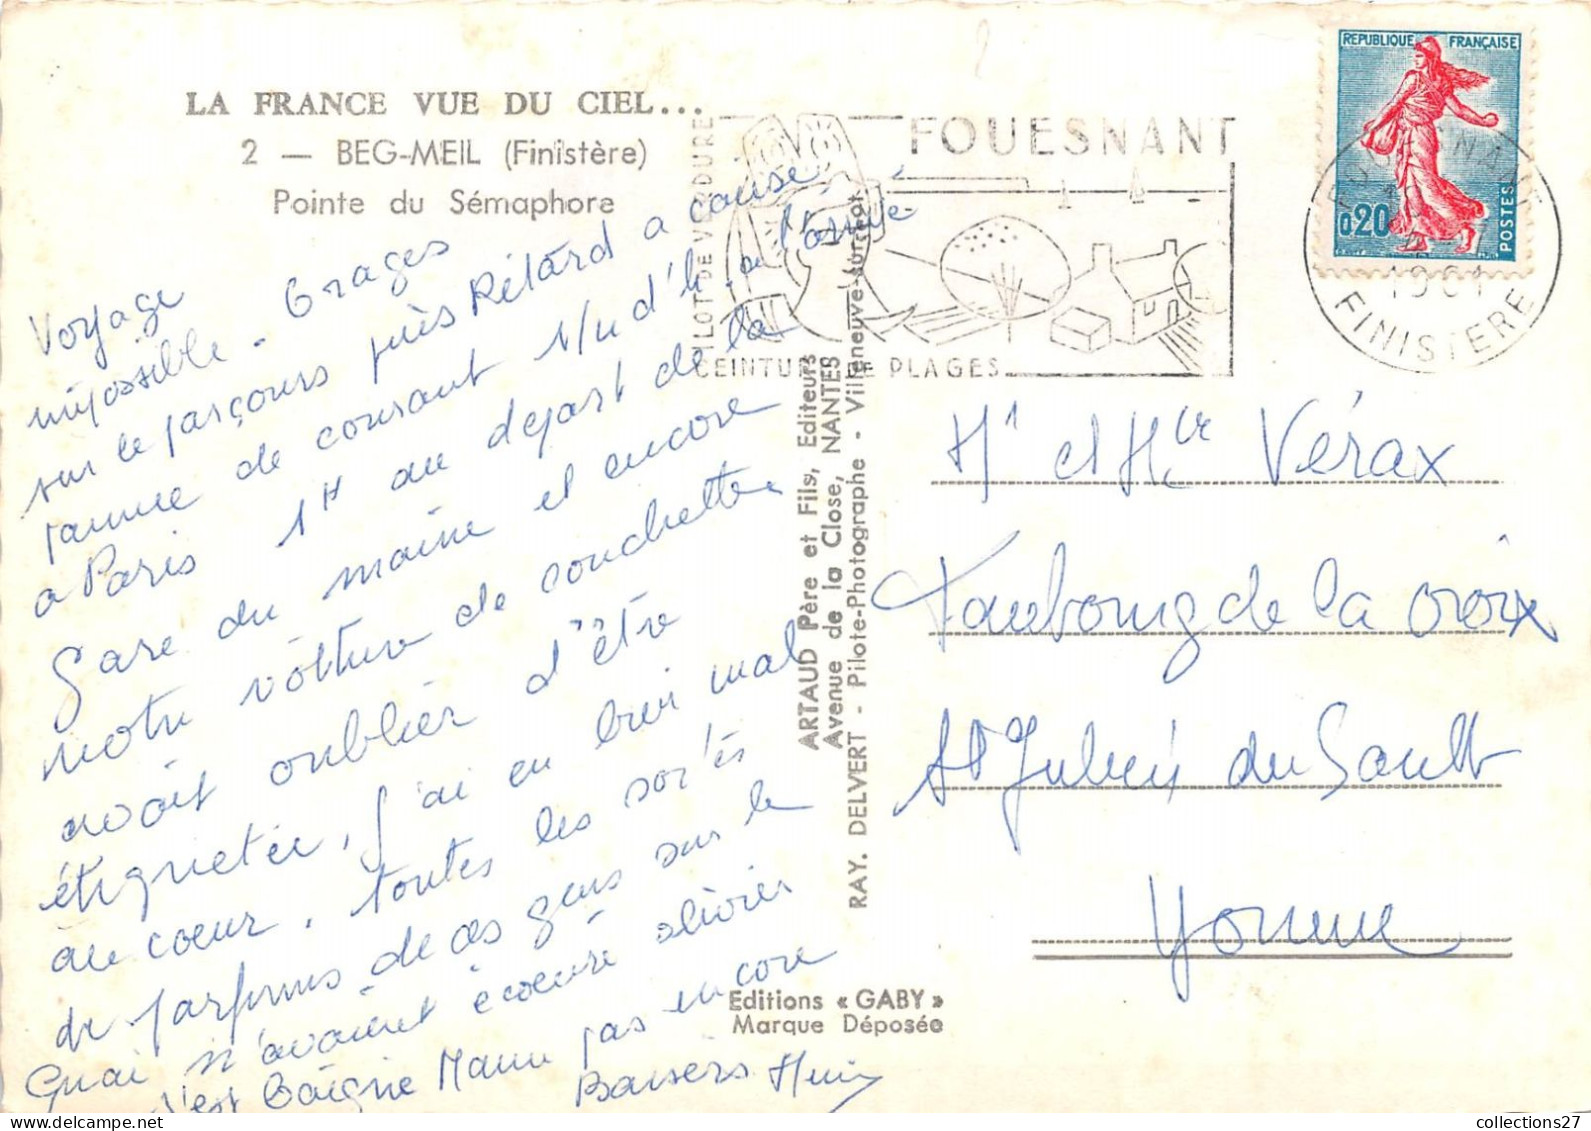 LA FRANCE VUE DU CIEL...
2 — BEG-MEIL (Finistère)
Pointe du Sémaphore
Voyage
impossible. Orages
sur le parçours puis Rétard a cause
panne de courant 1/2 d'h a l'arrivé
a Paris 1H au depart de la
Gare du maine et encore
notre voiture de couchette
avait oublier d'être
étiquetée, j'ai eu bien mal
au coeur. toutes les sortes
de parfums de ces gens sur le
Quai m'avaient écoeuré olivier
s'est baigné Manu pas encore
Baisers
FOUESNANT
ILOT DE VERDURE
CEINTURE DE PLAGES
REPUBLIQUE FRANÇAISE
0,20
POSTES
FOUESNANT
1961
FINISTERE
ARTAUD Père et Fils, Editeurs
Avenue de la Close, NANTES
RAY. DELVERT - Pilote-Photographe - Villeneuve-sur-Lot
Editions « GABY »
Marque Déposée
Mr et Mme Vérax
Faubourg de la croix
St Julien du Sault
Yonne
collections27